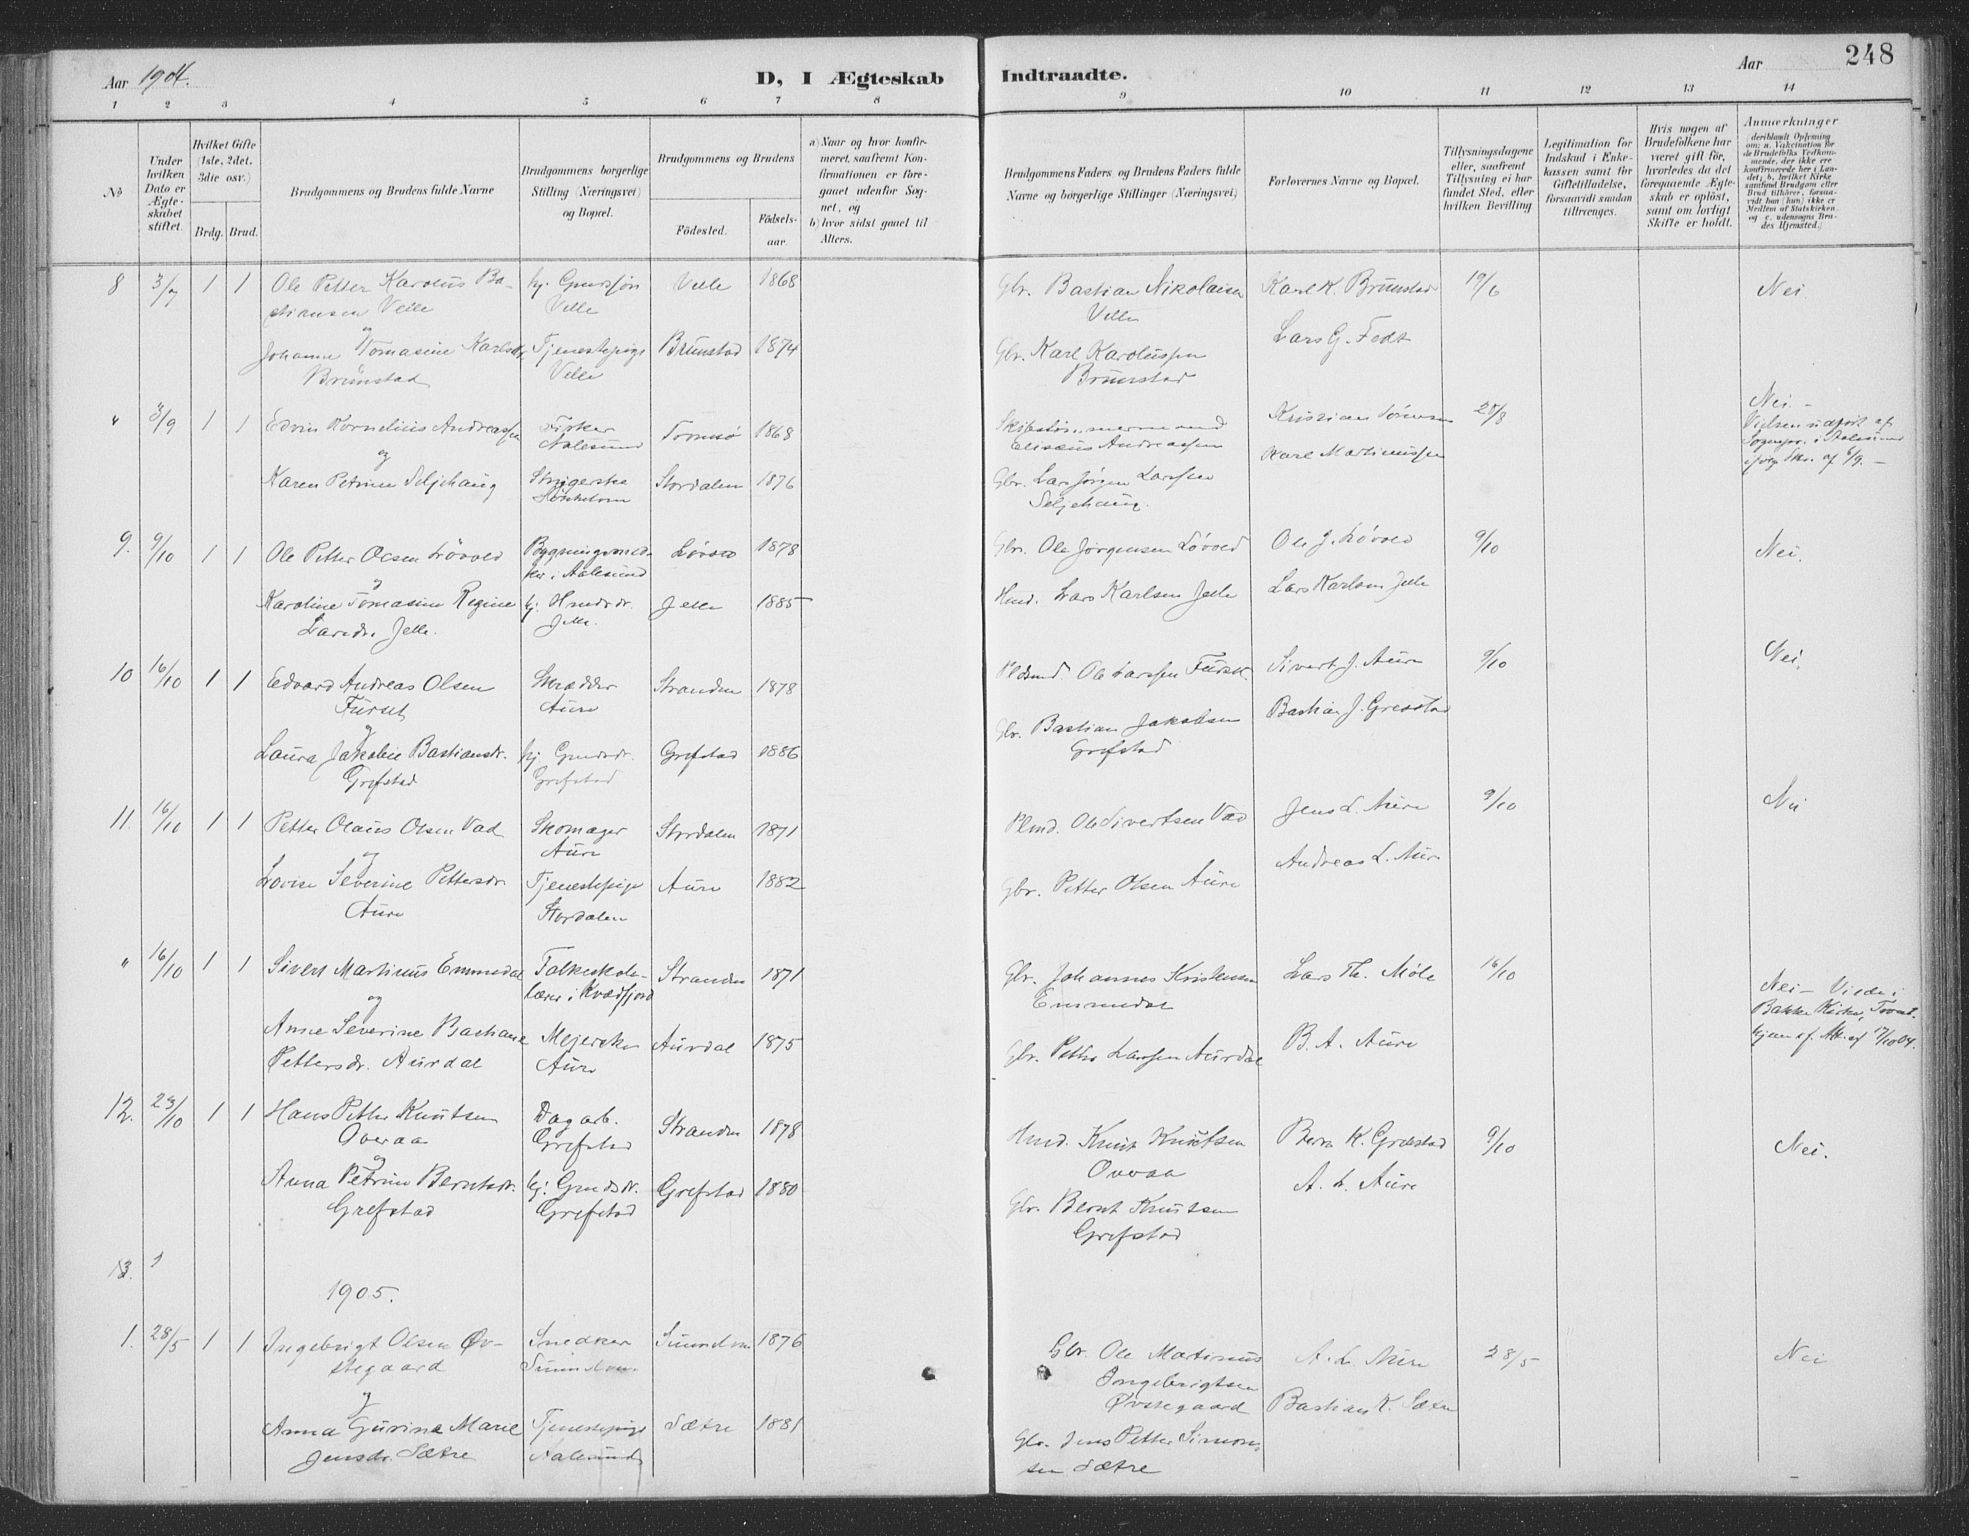 248
Aar 1904.
D, I Ægteskab Indtraadte.
Aar
1 2 3 4 5 6 7 8 9 10 11 12 13 14
No
Under hvilken Dato er Ægteskabet stiftet.
Hvilket Gifte (1ste, 2det, 3die osv.)
Brdg. Brud.
Brudgommens og Brudens fulde Navne
Brudgommens borgerlige Stilling (Næringsvei) og Bopæl.
Brudgommens og Brudens
Födested.
Födsels-aar.
a) Naar og hvor konfirmeret, saafremt Konfirmationen er foregaaet udenfor Sognet, og
b) hvor sidst gaaet til Alters.
Brudgommens Faders og Brudens Faders fulde Navne og borgerlige Stillinger (Næringsvei)
Forlovernes Navne og Bopæl.
Tillysningsdagene eller, saafremt Tillysning ei har fundet Sted, efter hvilken Bevilling
Legitimation for Indskud i Enkekassen samt for Giftetilladelse, forsaavidt saadan tiltrænges.
Hvis nogen af Brudefolkene har været gift før, hvorledes da det foregaaende Ægteskab er oplöst, samt om lovligt Skifte er holdt.
Anmærkninger
8 3/7 1 1 Ole Petter Karolus Bastiansen Velle
hj. Gmdssøn Velle
Velle 1868
Gbr. Bastian Nikolaisen Velle
Karl K. Brunstad
19/6
Nei
og
Johanne Tomasine Karlsdr. Brunstad
Tjenestepige Velle
Brunstad 1874
Gbr. Karl Karolussen Brunstad
Lars G. Fedt
" 3/9 1 1 Edvin Kornelius Andreassen
Aalesund
Tromsø 1868
Eliseus Andreassen
Kristian
28/8
Nei. -
og
Karen Petrine Seljehaug
Stordalen 1876
Gbr. Lars Jørgen Larssen Seljehaug.
Karl Martinussen
9. 9/10 1 1 Ole Petter Olsen Løvold
Bygningssnedker i Aalesund
1878
Gbr. Ole Jørgensen Løvold
Ole J. Løvold
9/10
Nei.
og
Karoline Tomasine Regine Larsdr. Jelle.
hj. Hmdsdr. Jelle.
Jelle 1885
Hmd. Lars Karlsen Jelle
Lars Karlsen Jelle
10 16/10 1 1 Edvard Andreas Olsen Furset
Skrædder Aure
Stranden 1878
Pldsmd Ole Larssen Furset.
Sivert J. Aure
9/10
Nei.
og
Laura Jakobie Bastiansdr. Grefstad
hj. Gmdsdr. Grefstad
Grefstad 1886
Gbr. Bastian Jakobsen Grefstad
Bastian J. Grefstad
11. 16/10 1 1 Petter Olaus Olsen Vad
Skomager Aure
Stordalen 1871
Plmd. Ole Sivertsen Vad
Jens L. Aure
9/10
Nei
og
Lovise Severine Pettersdr. Aure
Tjenestepige Stordalen
Aure 1882
Gbr. Petter Olsen Aure
Andreas L. Aure
" 16/10 1 1 Sivert Martinus Emmedal
Folkeskolelærer i Kvædfjord
Stranden 1871
Gbr. Johannes Kristensen Emmedal
Lars Th. Møle
16/10
Nei - Viede i Bakke Kirke, Trondhjem af. Att. af 17/10 04.
og
Anne Severine Bastiane Pettersdr. Aurdal
Mejerske Aure
Aurdal 1875
Gbr. Petter Larssen Aurdal
B. A. Aure
12. 23/10 1 1 Hans Petter Knutsen Overaa
Dagarb. Grefstad
Stranden 1878
Hmd. Knut Knutsen Overaa
Bernt K. Grefstad
9/10
Nei.
og
Anna Petrine Berntsdr. Grefstad
hj. Gmdsdr. Grefstad
Grefstad 1880
Gbr. Bernt Knutsen Grefstad
A. L. Aure
13.
1905.
1. 28/5 1 1 Ingebrigt Olsen Øvstegaard
Snedker Sunndalen
Sunndalen 1876
Gbr. Ole Martinus Ingebrigtsen Øvstegaard
A. L. Aure
28/5
Nei
og
Anna Gurine Marie Jensdr. Sætre
Tjenestepige Aalesund
Sætre 1881
Gbr. Jens Petter Simonsen Sætre
Bastian K. Sætre